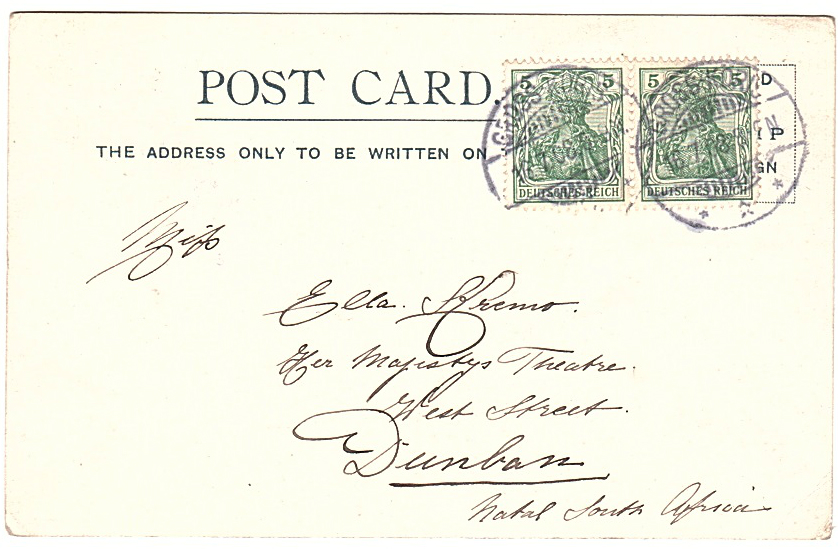 POST CARD.
THE ADDRESS ONLY TO BE WRITTEN ON
D
IP
GN
5 5
DEUTSCHES REICH
5 5
DEUTSCHES REICH
Miss
Ella. Skremo.
Her Majestys Theatre.
West Street.
Durban
Natal South Africa